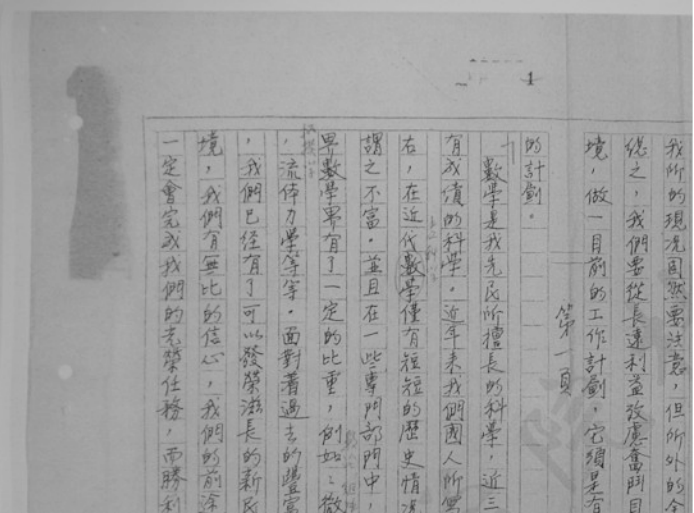 1
我所的現況固然要注意，但所外的
總之，我們要從長遠利益攷慮奮鬥目
境，做一目前的工作計劃，它須是有
第一頁
的計劃。
數學是我先民所擅長的科學，近三
有成績的科學。近年来我們國人所
右，在近代數學僅有短短的歷史情况
謂之不富。並且在一些專門部門中，
界數學界有了一定的比重，例如：
，流体力學等等。面對着過去的豐富
，我們已经有了可以發榮滋長的新民
境，我們有無比的信心，我們的前途
一定會完成我們的光榮任務，而勝利